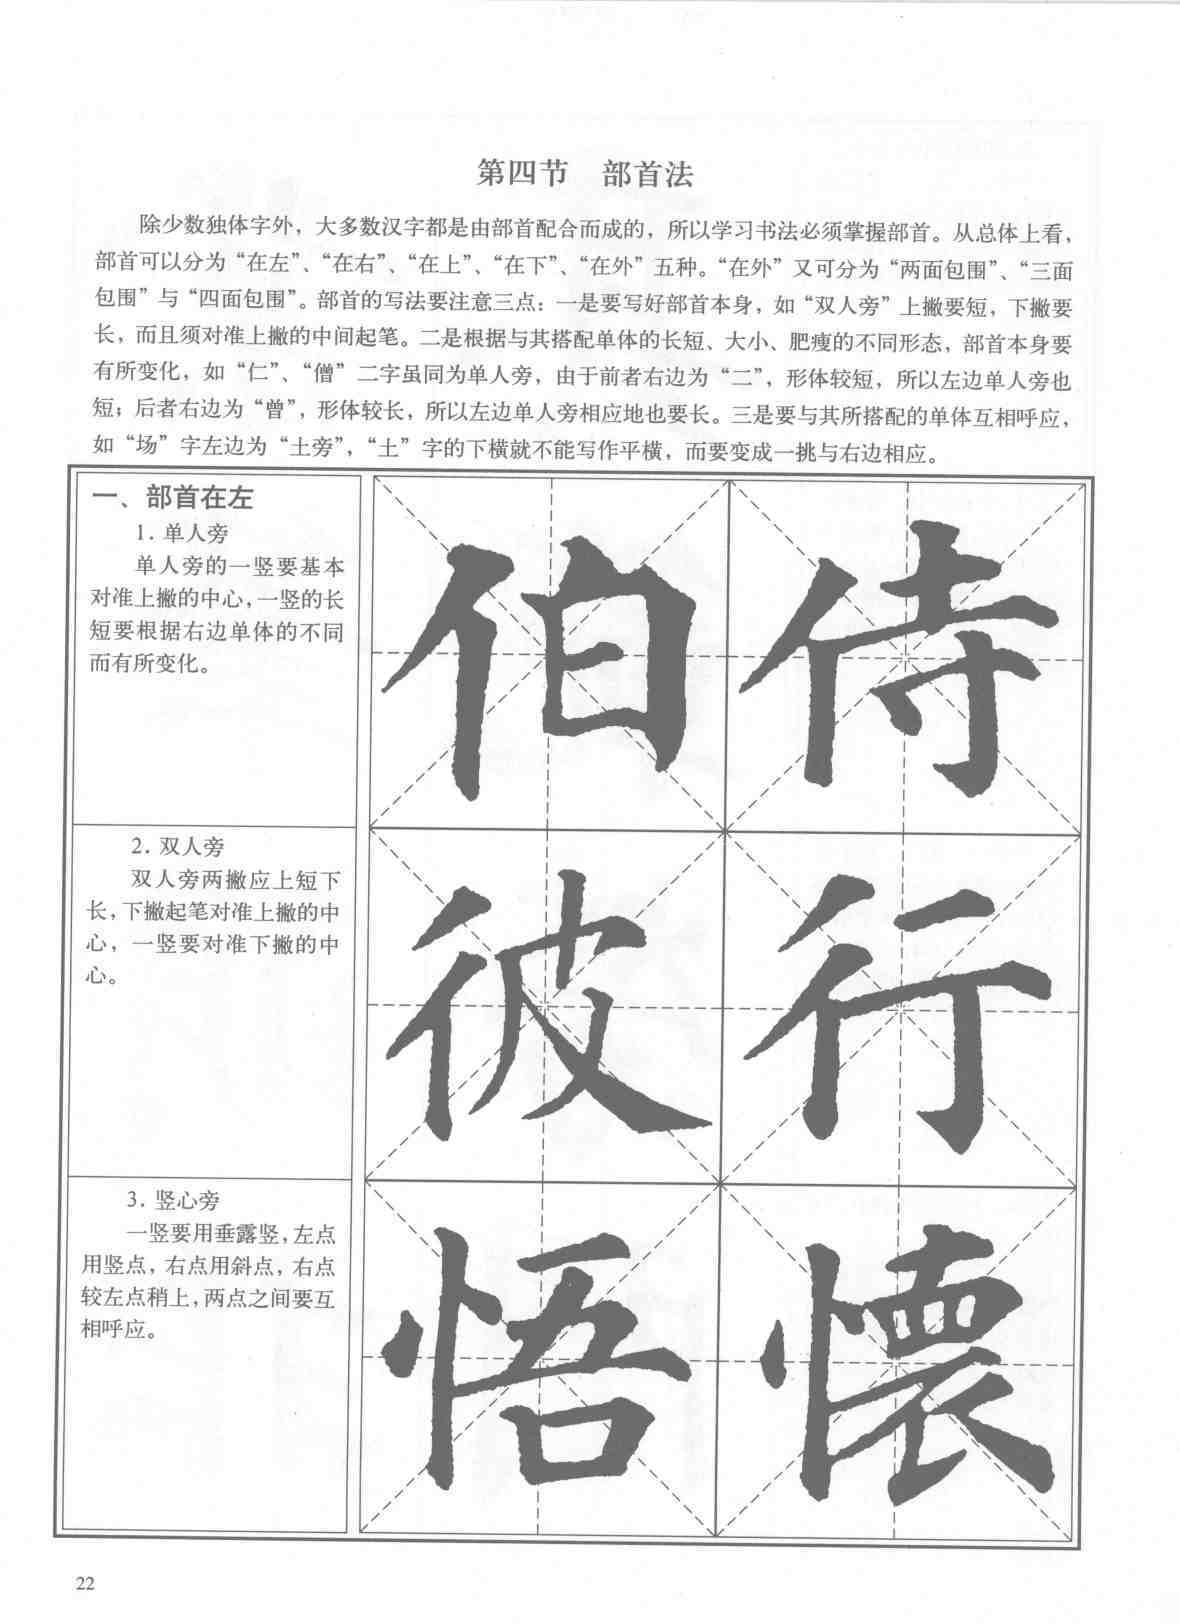 第四节　部首法
除少数独体字外，大多数汉字都是由部首配合而成的，所以学习书法必须掌握部首。从总体上看，
部首可以分为“在左”、“在右”、“在上”、“在下”、“在外”五种。“在外”又可分为“两面包围”、“三面
包围”与“四面包围”。部首的写法要注意三点：一是要写好部首本身，如“双人旁”上撇要短，下撇要
长，而且须对准上撇的中间起笔。二是根据与其搭配单体的长短、大小、肥瘦的不同形态，部首本身要
有所变化，如“仁”、“僧”二字虽同为单人旁，由于前者右边为“二”，形体较短，所以左边单人旁也
短；后者右边为“曾”，形体较长，所以左边单人旁相应地也要长。三是要与其所搭配的单体互相呼应，
如“场”字左边为“土旁”，“土”字的下横就不能写作平横，而要变成一挑与右边相应。
一、部首在左
1. 单人旁
单人旁的一竖要基本
对准上撇的中心，一竖的长
短要根据右边单体的不同
而有所变化。
伯 侍
2. 双人旁
双人旁两撇应上短下
长，下撇起笔对准上撇的中
心，一竖要对准下撇的中
心。
彼 行
3. 竖心旁
一竖要用垂露竖，左点
用竖点，右点用斜点，右点
较左点稍上，两点之间要互
相呼应。
悟 懷
22